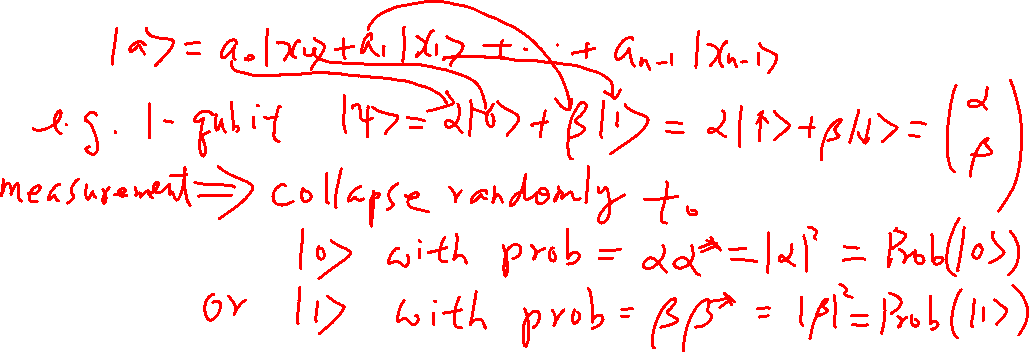 |a> = a₀|x₀> + a₁|x₁> + ... + aₙ₋₁|xₙ₋₁>
e.g. 1-qubit |ψ> = α|0> + β|1> = α|↑> + β|↓> = (α β)
measurement ⇒ collapse randomly to
|0> with prob = αα* = |α|² = Prob(|0>)
or |1> with prob = ββ* = |β|² = Prob(|1>)